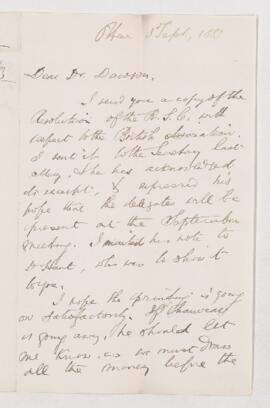 3 Sept, 1883
Dear Dr. Dawson,
I send you a copy of the
Resolution of the R. S. C. with
respect to the British Association.
I sent it to the Secretary last
May. He has acknowledged
its receipt, & expressed his
hope that the delegates will be
present at the September
meeting. I mailed his note to
Dr Hunt, who was to show it
to you.
I hope the printing is going
on satisfactorily. If
is going away, he should let
me know, as we must draw
all the money before the